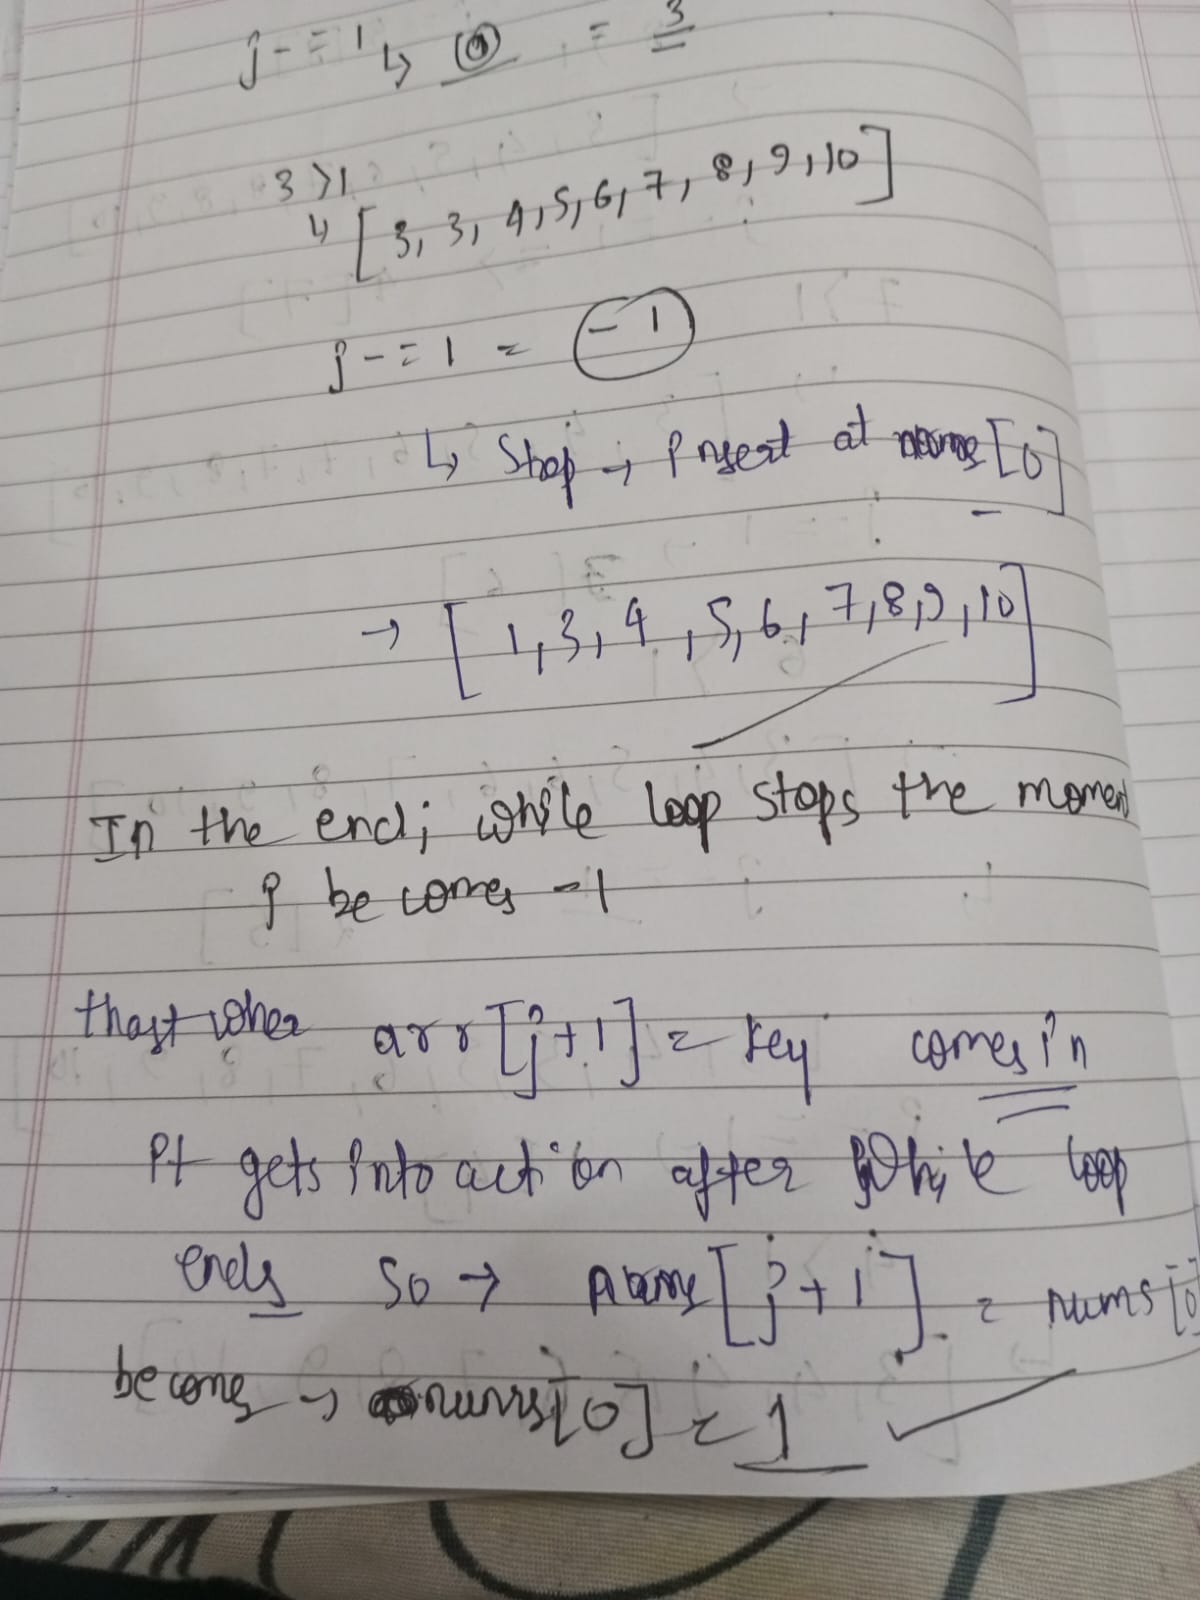 j-=1 ↳ 0 = 3
3>1
↳ [3, 3, 4, 5, 6, 7, 8, 9, 10]
j-=1 = -1
↳ Stop → Insert at nums[0]
→ [1, 3, 4, 5, 6, 7, 8, 9, 10]
In the end; while loop stops the moment
j becomes -1
arr[j+1] = key comes in
It gets into action after while loop
ends so → nums[j+1] = nums[0]
become → nums[0] = 1